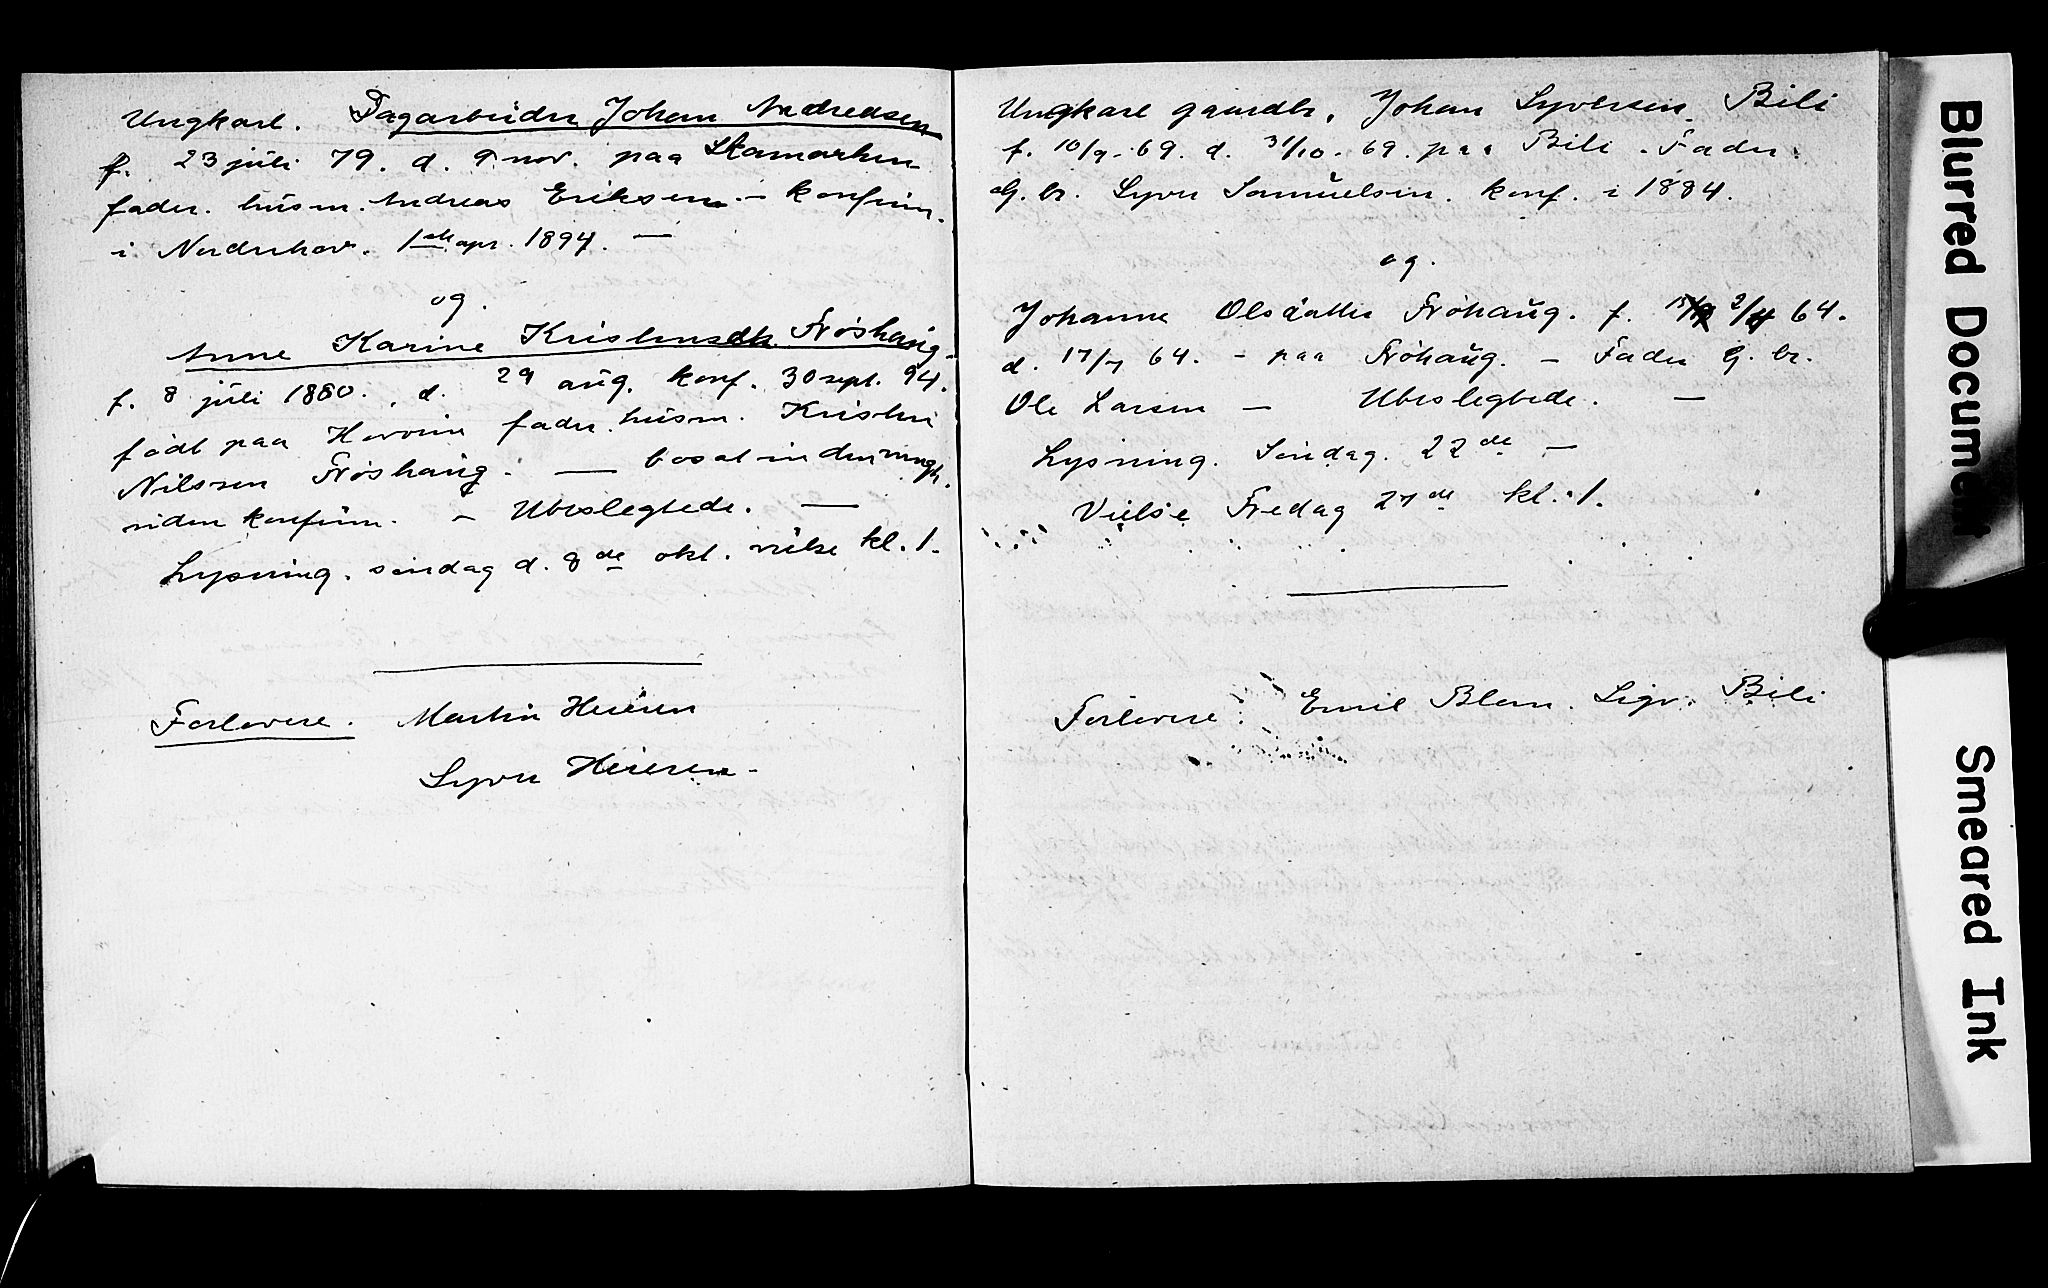 Ungkarl. Dagarbeider Johan Andreasen
f. 23 juli 79. d. 9 nov. paa
fader. husm. Andreas Eriksen. — konfirm.
i Norderhov. 1ste apr. 1894. —
og.
Anne Karine Kristensdtr. Frøshaug.
f. 8 juli 1880. d. 29 aug. konf. 30 sept. 94.
født paa fader. husm. Kristen
Nilssen Frøshaug. — bosat inden
siden konfirm. — Ubeslegtede. —
Lysning. søndag d. 8de okt. vielse kl. 1.
Forlovere. Martin Heieren
Syver Heieren -
Ungkarl gaardbr. Johan Syversen Bili
f. 10/9 - 69. d. 31/10 - 69. paa Bili. Fader.
G. br. Syver Samuelsen. konf. i 1884.
og.
Johanne Olsdatter Frøhaug. f. 2/4 64.
d. 17/7 64. - paa Frøhaug. — Fader G. br.
Ole Larsen — Ubeslegtede. —
Lysning. Søndag. 22de —
Vielse Fredag 27de kl. 1.
Forlovere. Emil Blom. Sigv. Bili
Blurred Document
Smeared Ink